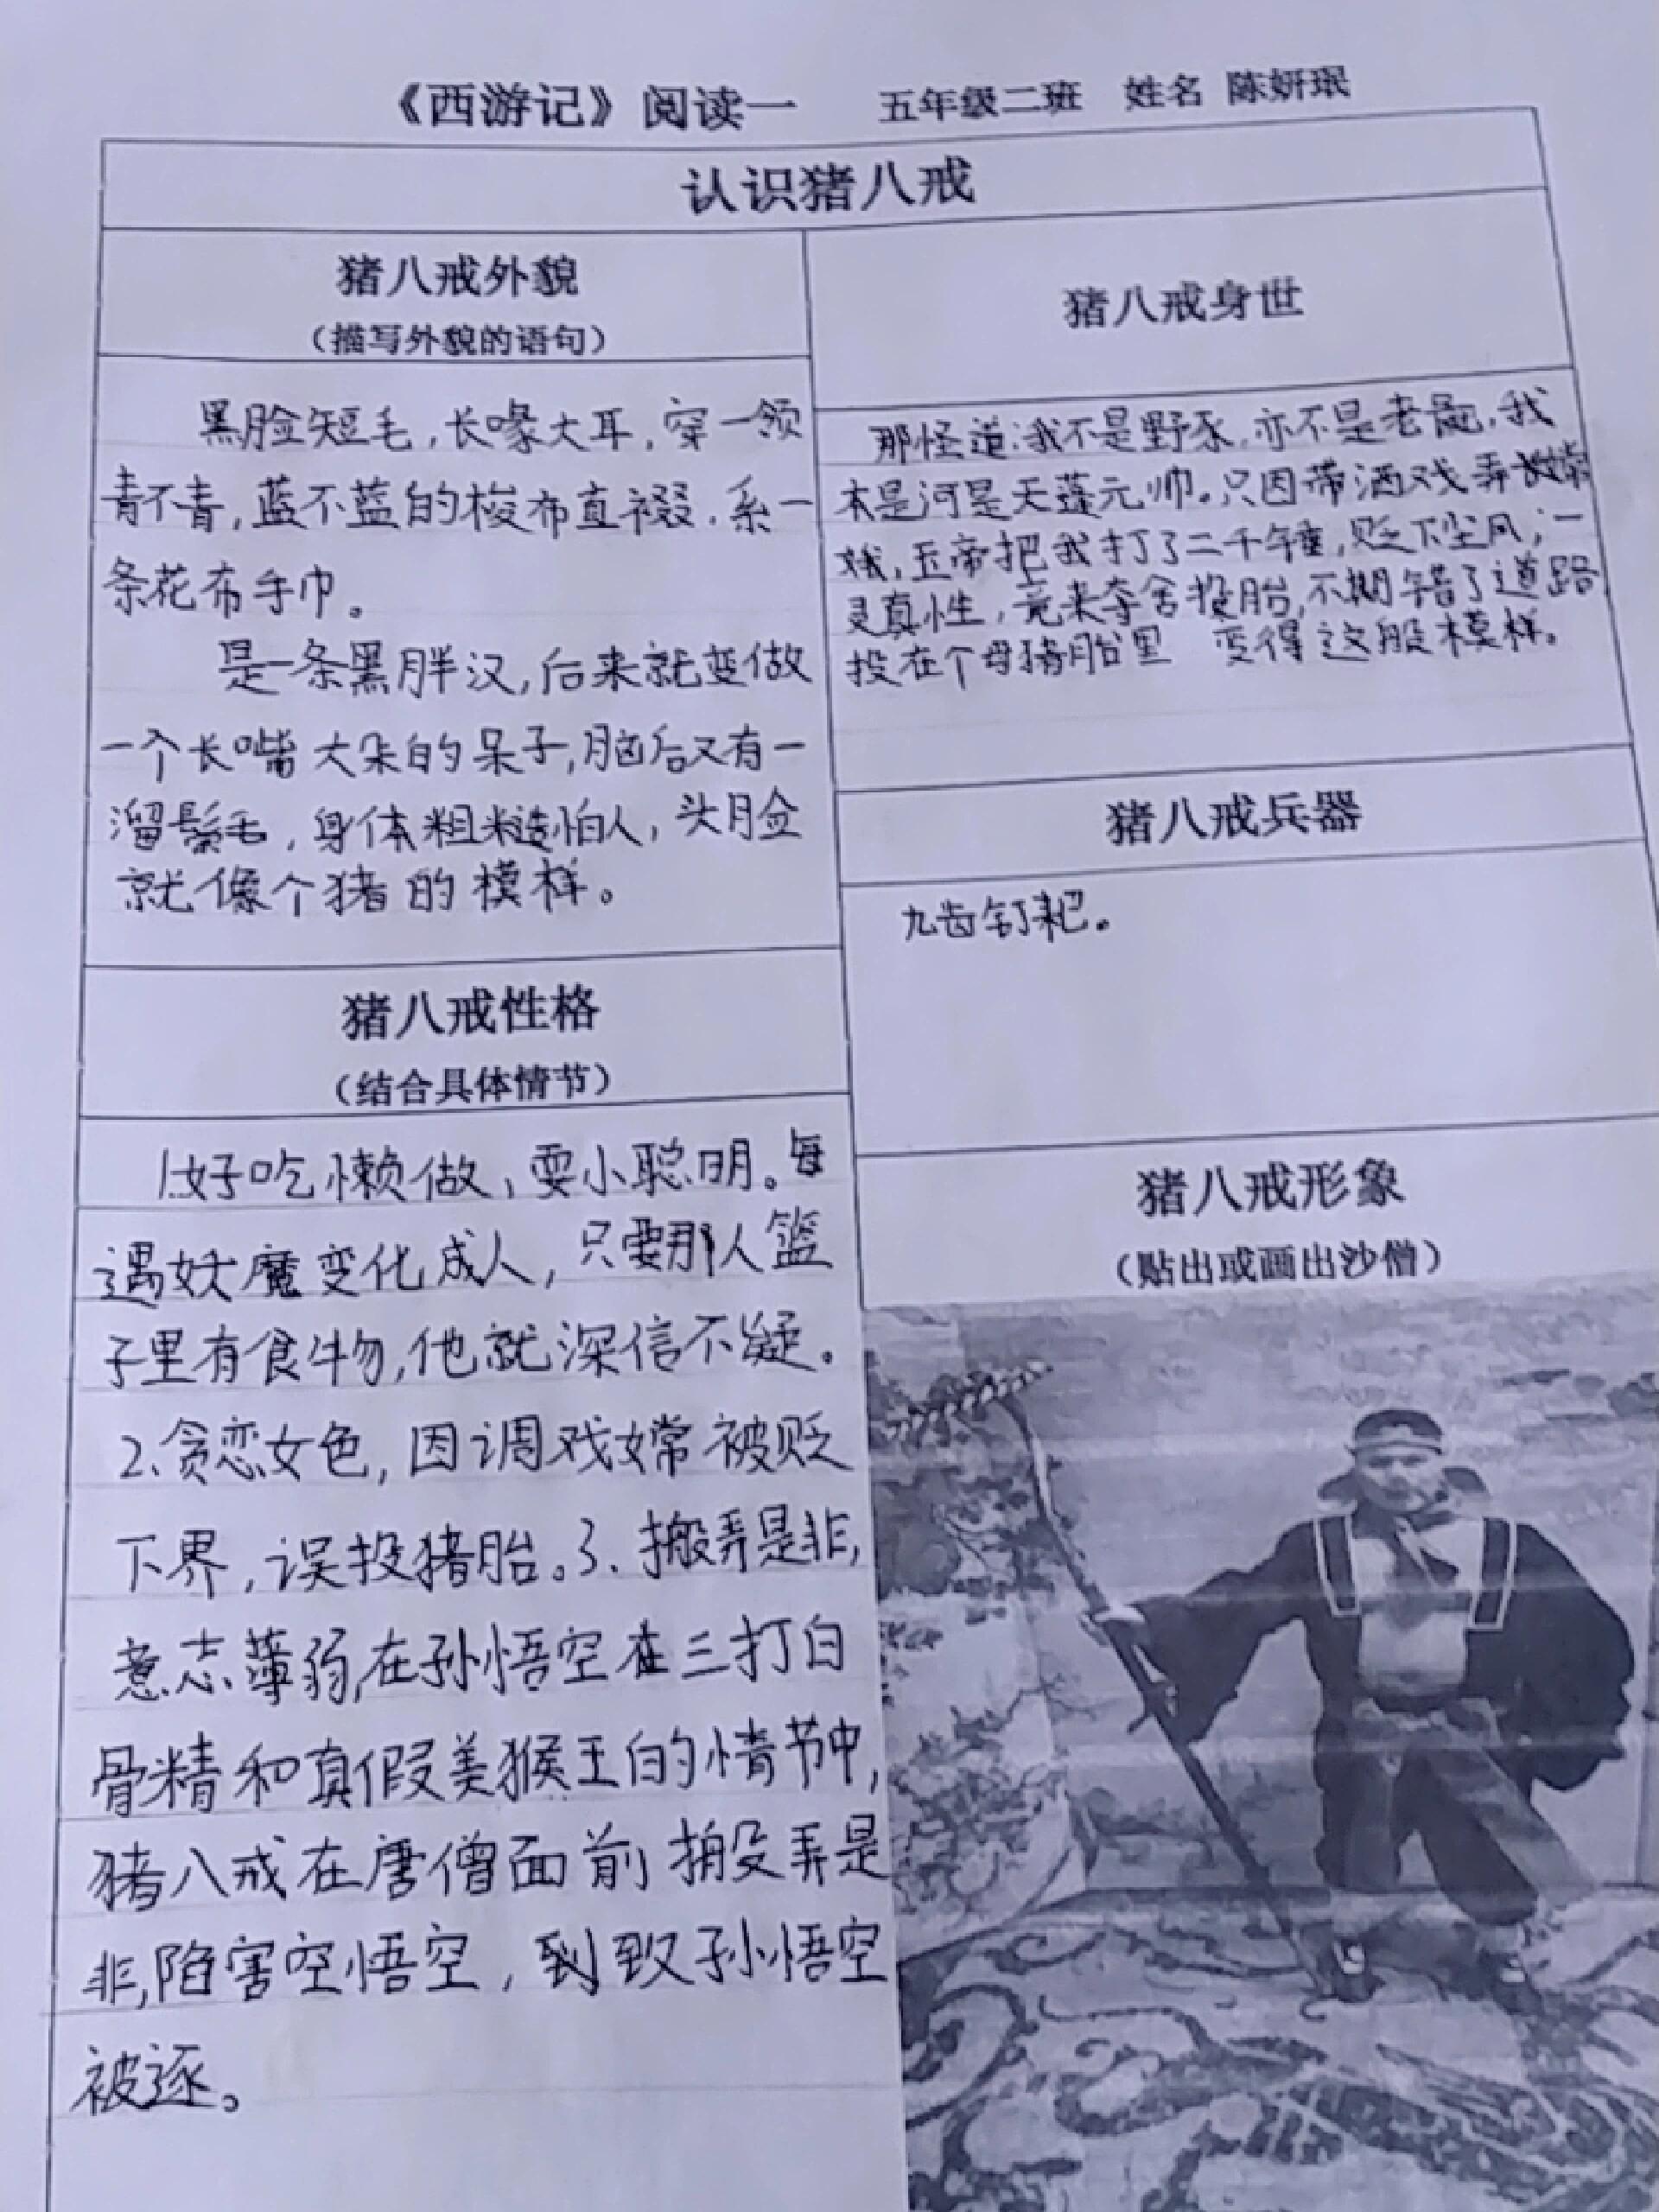 《西游记》阅读一 五年级二班 姓名 陈妍珉
认识猪八戒
猪八戒外貌
（描写外貌的语句）
黑脸短毛，长喙大耳，穿一领
青不青，蓝不蓝的梭布直裰，系一
条花布手巾。
是一条黑胖汉，后来就变做
一个长嘴大朵的呆子，脑后又有一
溜鬃毛，身体粗糙怕人，头脸
就像个猪的模样。
猪八戒性格
（结合具体情节）
1.好吃懒做，耍小聪明。每
遇妖魔变化成人，只要那人篮
子里有食物，他就深信不疑。
2、贪恋女色，因调戏嫦被贬
下界，误投猪胎。3、搬弄是非，
意志薄弱，在孙悟空在三打白
骨精和真假美猴王的情节中，
猪八戒在唐僧面前搬弄是
非，陷害空悟空，到致孙悟空
被逐。
猪八戒身世
那怪道：我不是野豕，亦不是老彘，我
本是河是天蓬元帅。只因带酒戏弄嫦
娥，玉帝把我打了二千锤，贬下尘凡；一
灵真性，竟来夺舍投胎，不期错了道路，
投在个母猪胎里 变得这般模样。
猪八戒兵器
九齿钉耙。
猪八戒形象
（贴出或画出沙僧）